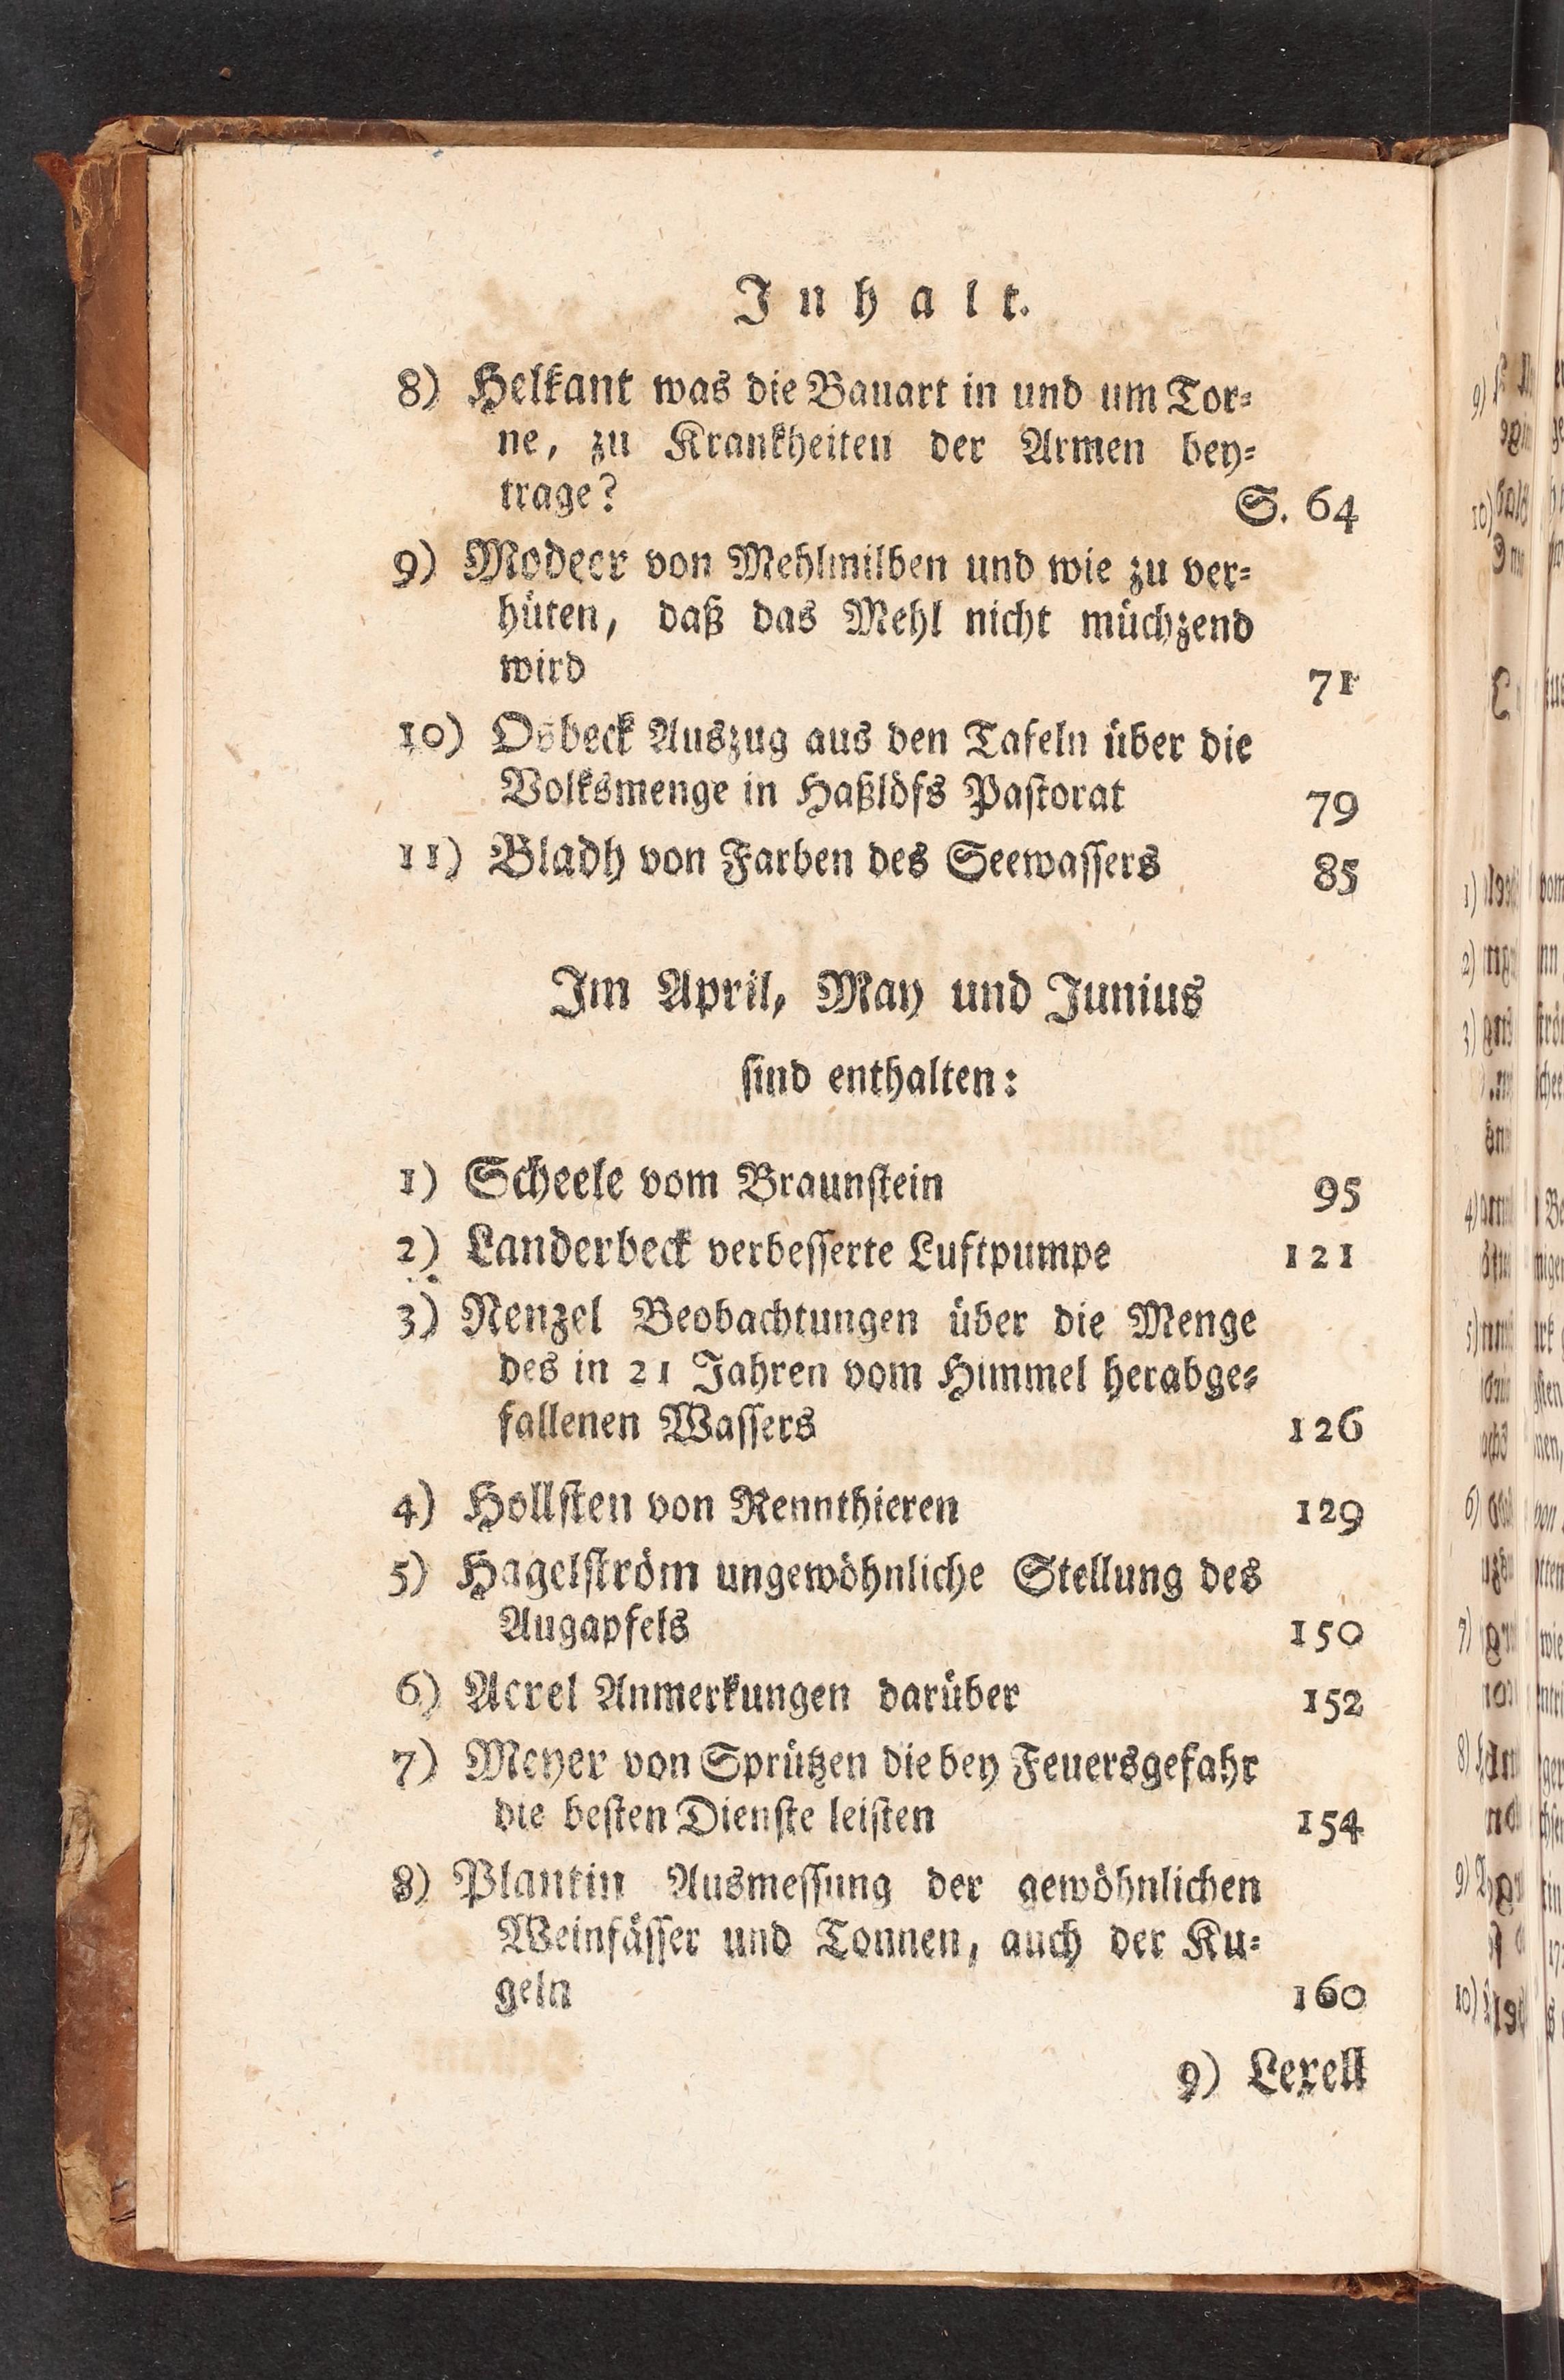 Inhalt.
8) Helkant was die Bauart in und um Tor-
ne, zu Krankheiten der Armen bey-
trage? S. 64
9) Modeer von Mehlmilben und wie zu ver-
hüten, daß das Mehl nicht müchzend
wird 71
10) Osbeck Auszug aus den Tafeln über die
Volksmenge in Haßlöfs Pastorat 79
11) Bladh von Farben des Seewassers 85
Im April, May und Junius
sind enthalten:
1) Scheele vom Braunstein 95
2) Landerbeck verbesserte Luftpumpe 121
3) Nenzel Beobachtungen über die Menge
des in 21 Jahren vom Himmel herabge-
fallenen Wassers 126
4) Hollsten von Rennthieren 129
5) Hagelström ungewöhnliche Stellung des
Augapfels 150
6) Acrel Anmerkungen darüber 152
7) Meyer von Sprützen die bey Feuersgefahr
die besten Dienste leisten 154
8) Plantin Ausmessung der gewöhnlichen
Weinfässer und Tonnen, auch der Ku-
geln 160
9) Lexell